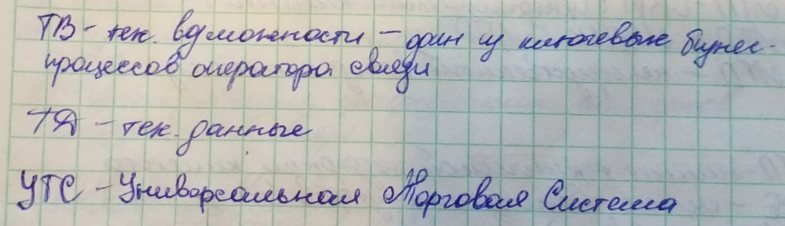 ТВ - тех. возможности - один из ключевых бизнес-
процессов оператора связи
ТД - тех. данные
УТС - Универсальная Торговая Система